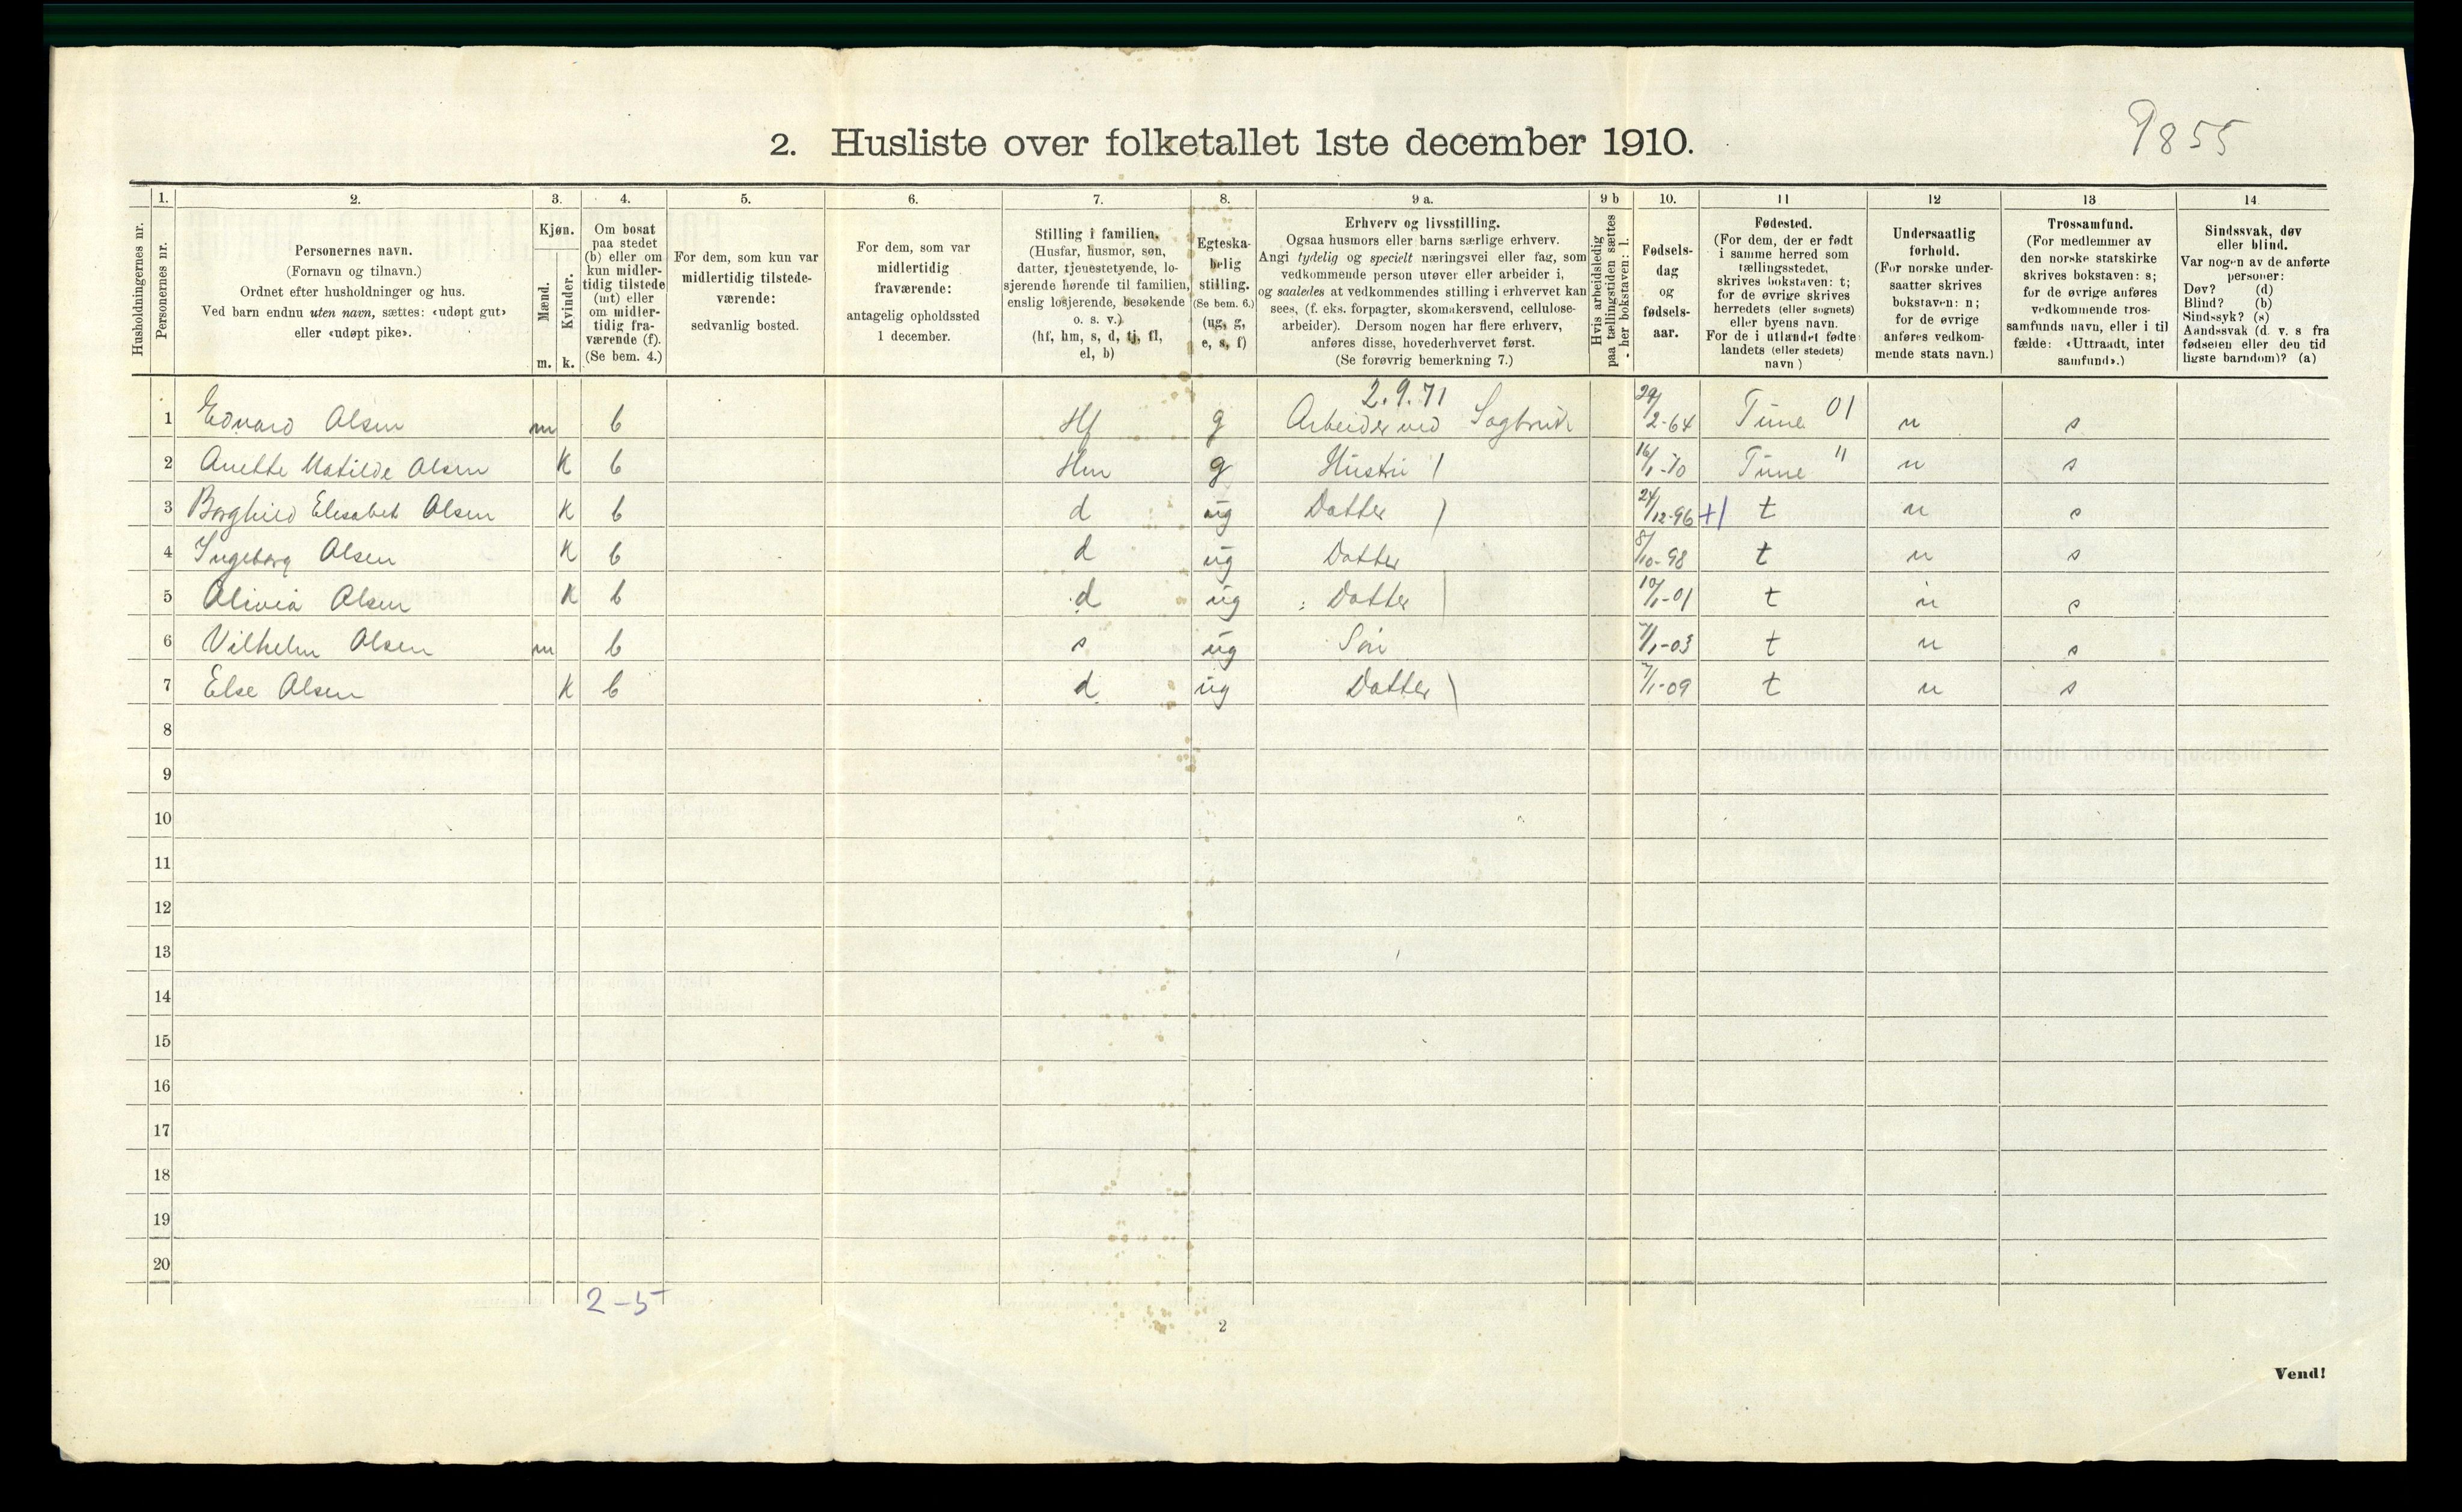 9855
2. Husliste over folketallet 1ste december 1910.
Husholdningernes nr.
1.
Personernes nr.
2.
Personernes navn.
(Fornavn og tilnavn.)
Ordnet efter husholdninger og hus.
Ved barn endnu uten navn, sættes: «udøpt gut»
eller «udøpt pike».
3.
Kjøn.
Mænd.
Kvinder.
m. k.
4.
Om bosat
paa stedet
(b) eller om
kun midler-
tidig tilstede
(mt) eller
om midler-
tidig fra-
værende (f).
(Se bem. 4.)
5.
For dem, som kun var
midlertidig tilstede-
værende:
sedvanlig bosted.
6.
For dem, som var
midlertidig
fraværende:
antagelig opholdssted
1 december.
7.
Stilling i familien.
(Husfar, husmor, søn,
datter, tjenestetyende, lo-
sjerende hørende til familien,
enslig losjerende, besøkende
o. s. v.)
(hf, hm, s, d, tj, fl,
el, b)
8.
Egteska-
belig
stilling.
(Se bem. 6.)
(ug, g,
e, s, f)
9 a.
Erhverv og livsstilling.
Ogsaa husmors eller barns særlige erhverv.
Angi tydelig og specielt næringsvei eller fag, som
vedkommende person utøver eller arbeider i,
og saaledes at vedkommendes stilling i erhvervet kan
sees, (f. eks. forpagter, skomakersvend, cellulose-
arbeider). Dersom nogen har flere erhverv,
anføres disse, hovederhvervet først.
(Se forøvrig bemerkning 7.)
9 b
Hvis arbeidsledig
paa tællingstiden sættes
her bokstaven: l.
10.
Fødsels-
dag
og
fødsels-
aar.
11
Fødested.
(For dem, der er født
i samme herred som
tællingsstedet,
skrives bokstaven: t;
for de øvrige skrives
herredets (eller sognets)
eller byens navn.
For de i utlandet fødte:
landets (eller stedets)
navn)
12
Undersaatlig
forhold.
(For norske under-
saatter skrives
bokstaven: n;
for de øvrige
anføres vedkom-
mende stats navn.)
13
Trossamfund.
(For medlemmer av
den norske statskirke
skrives bokstaven: s;
for de øvrige anføres
vedkommende tros-
samfunds navn, eller i til
fælde: «Uttraadt, intet
samfund».)
14
Sindssvak, døv
eller blind.
Var nogen av de anførte
personer:
Døv? (d)
Blind? (b)
Sindssyk? (s)
Aandssvak (d. v. s fra
fødselen eller den tid
ligste barndom)? (a)
2.9.71
1 Edvard Olsen m b Hf g Arbeider ved Sagbruk 29/2-64 Tune 01 n s
2 Anette Matilde Olsen K b Hm g Hustru 16/1-70 Tune " n s
3 Borghild Elisabet Olsen K b d ug Datter 24/12-96 +1 t n s
4 Ingeborg Olsen K b d ug Datter 8/10-98 t n s
5 Olivia Olsen K b d ug Datter 10/1-01 t n s
6 Vilhelm Olsen m b s ug Søn 7/1-03 t n s
7 Else Olsen K b d ug Datter 7/1-09 t n s
8
9
10
11
12
13
14
15
16
17
18
19
20
2-5
2
Vend!